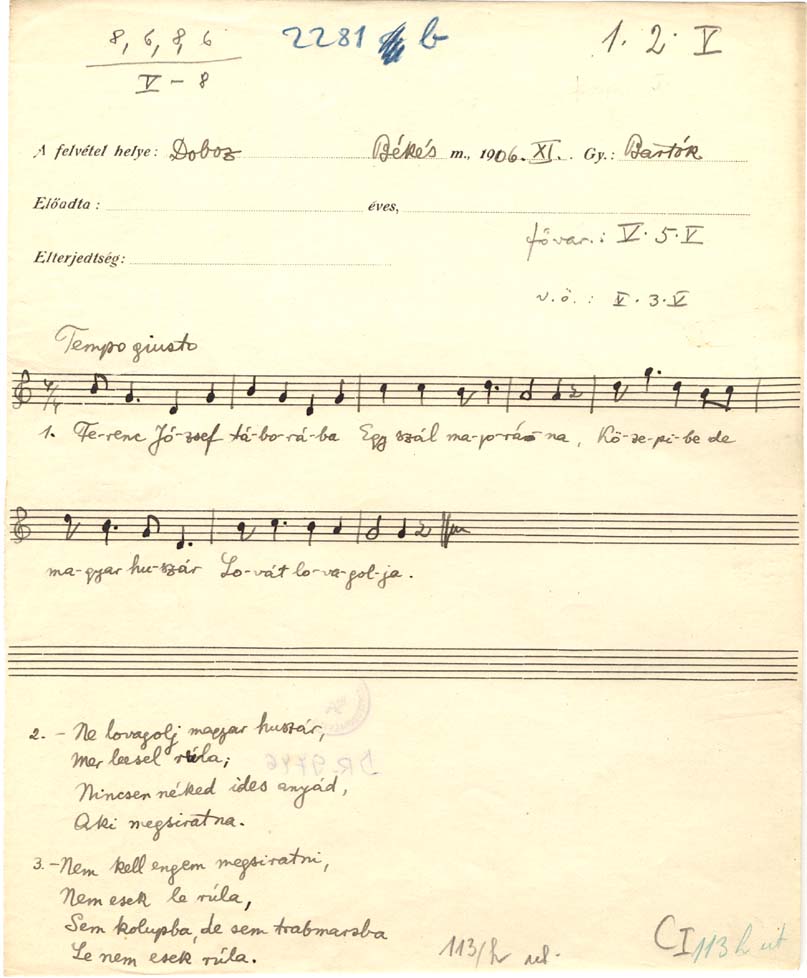 8, 6, 8, 6
V – 8
2281 b
1. 2. V
A felvétel helye: Doboz Békés m., 1906. XI. Gy.: Bartók
Előadta: éves,
fővar.: V. 5. V
Elterjedtség:
v.ö.: V. 3. V
Tempo giusto
1. Fe-renc Jó-zsef tá-bo-rá-ba Egy szál ma-jo-rán-na, Kö-ze-pi-be de
ma-gyar hu-szár Lo-vát lo-va-gol-ja.
2. – Ne lovagolj magyar huszár,
Mer leesel rúla;
DR. 9746
Nincsen néked ides anyád,
Aki megsiratna.
3. – Nem kell engem megsiratni,
Nem esek le rúla,
Sem kolupba, de sem trabmarsba
Le nem esek rúla.
113/h
CI 113 h